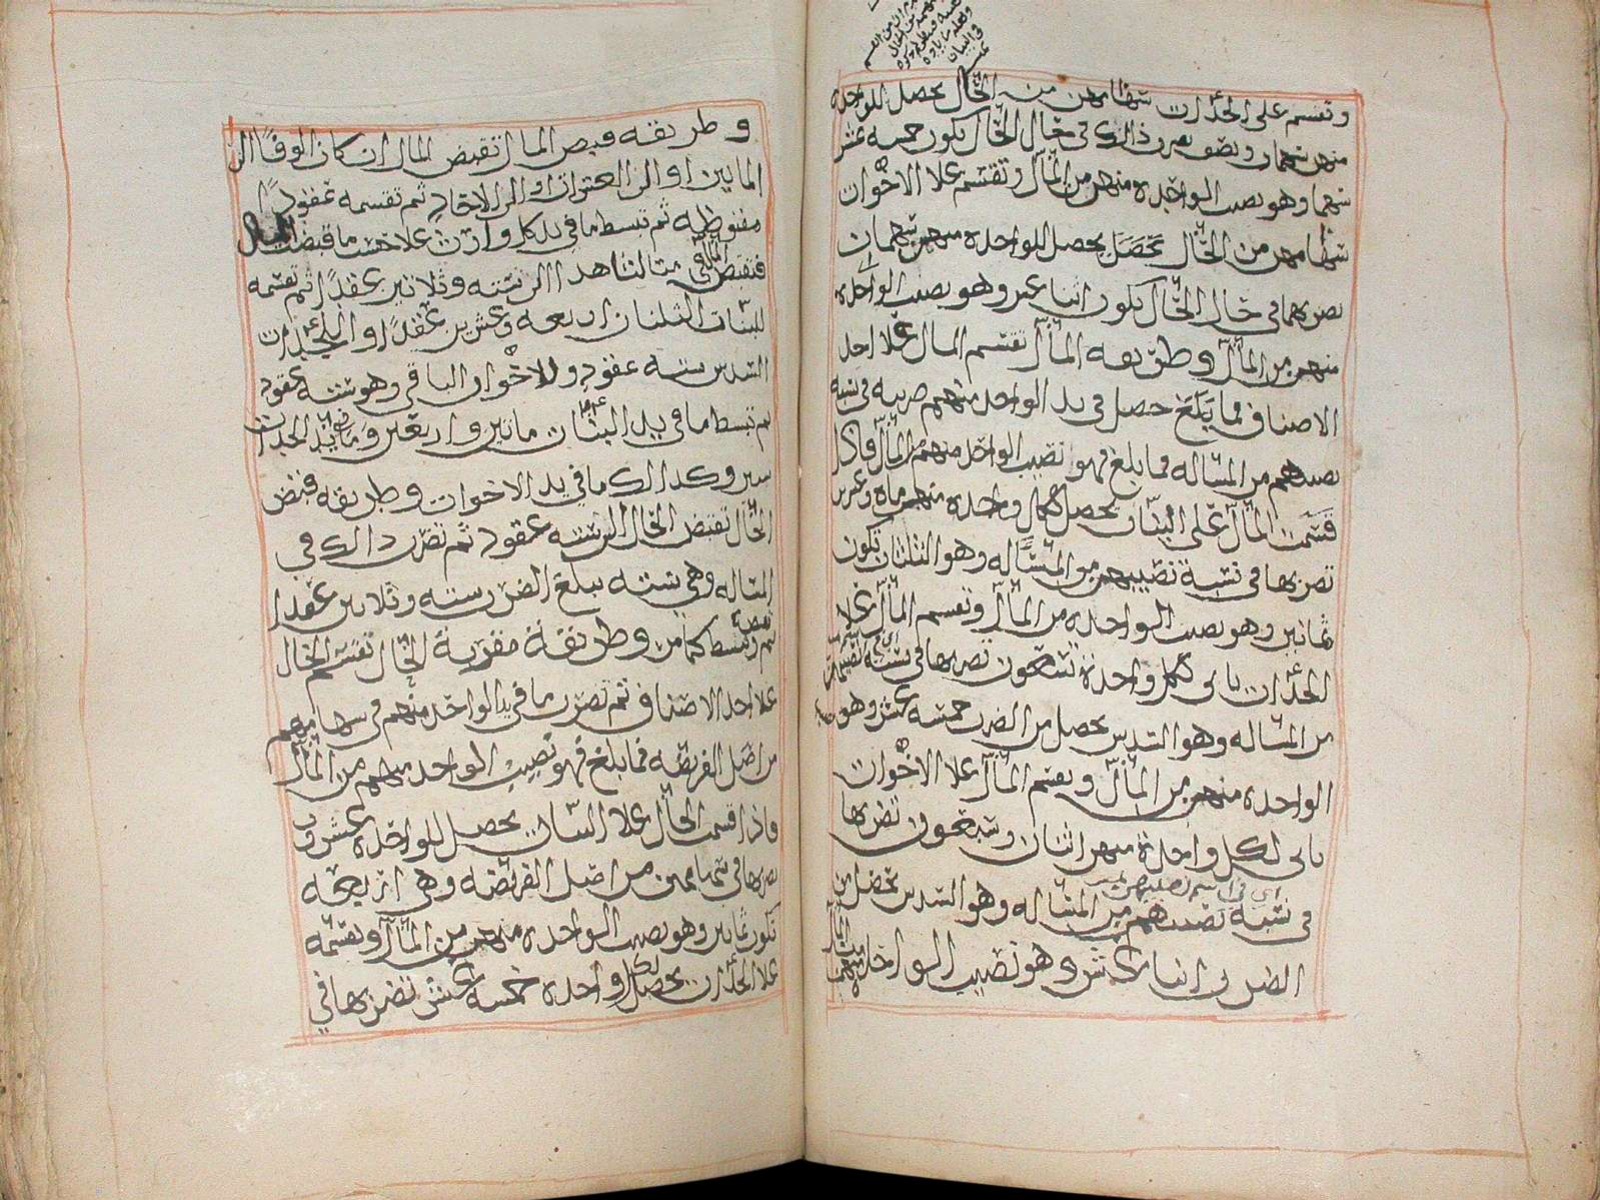 وتقسم على الجدات سهامهن من الحال يحصل للواحده
منهن سهمان ونصف تضرب ذالك في حال الحال يكون خمسه عشر
سهما وهو نصيب الواحده منهن من المال وتقسم علا الاخوات
سهامهن من الحال يحصل للواحده منهن سهمان
تضربهما في حال الحال يكون اثنا عشر وهو نصيب الواحده
منهن من المال وطريقه المال تقسم المال علا احد
الاصناف فما بلغ حصل في يد الواحد منهم ضربه في نسبه
نصيبهم من المساله فما بلغ فهو نصيب الواحد منهم من المال فاذا
قسمت المال على البنات يحصل لكل واحده منهم مايه وعشرين
تضربها في نسبة نصيبهم من المساله وهو الثلثان تكون
ثمانين وهو نصيب الواحده من المال وتقسم المال علا
الجدات ياتي لكل واحدة تسعون تضربها في نسبة نصيبهن
من المساله وهو السدس يحصل من الضرب خمسه عشر وهو
الواحده منهن من المال وتقسم المال علا الاخوات
ياتي لكل واحدة منهن اثنان وسبعون تضربها
في نسبة نصيبهم من المساله وهو السدس يحصل من
الضرب اثنا عشر وهو نصيب الواحده
وطريقه قبض المال تقبض المال ان كان الوفا الى
الماتين او الى العشرات او الى الاحاد ثم تقسمه عقودا
مقبوظه ثم تبسط ما في يد كل وارث علا حسب ما قبضت المال
فتقبض المال في مثالنا هذا الى سته وثلاثين عقدا ثم تقسمه
للبنات الثلثان اربعه وعشرين عقدا وللجدات
السدس سته عقود وللاخوات الباقي وهو سته عقود
ثم تبسط ما في يد البنات ماتين واربعين وما في يد الجدات
ستين وكذالك ما في يد الاخوات وطريقه قبض
الحال تقبض الحال الى سته عقود ثم تضرب ذالك في
المساله وهي سته يبلغ الضرب سته وثلاثين عقدا
ثم تبسط كما مر وطريقة مقربة الحال تقسم الحال
علا احد الاصناف ثم تضرب ما في يد الواحد منهم في سهامهم
من اصل الفريضه فما بلغ فهو نصيب الواحد منهم من المال
فاذا قسمت الحال علا البنات يحصل للواحده عشرون
تضربها في سهامهن من اصل الفريضه وهي اربعه
تكون ثمانين وهو نصيب الواحده منهن من المال وتقسمه
علا الجدات يحصل لكل واحده خمسه عشر تضربها في